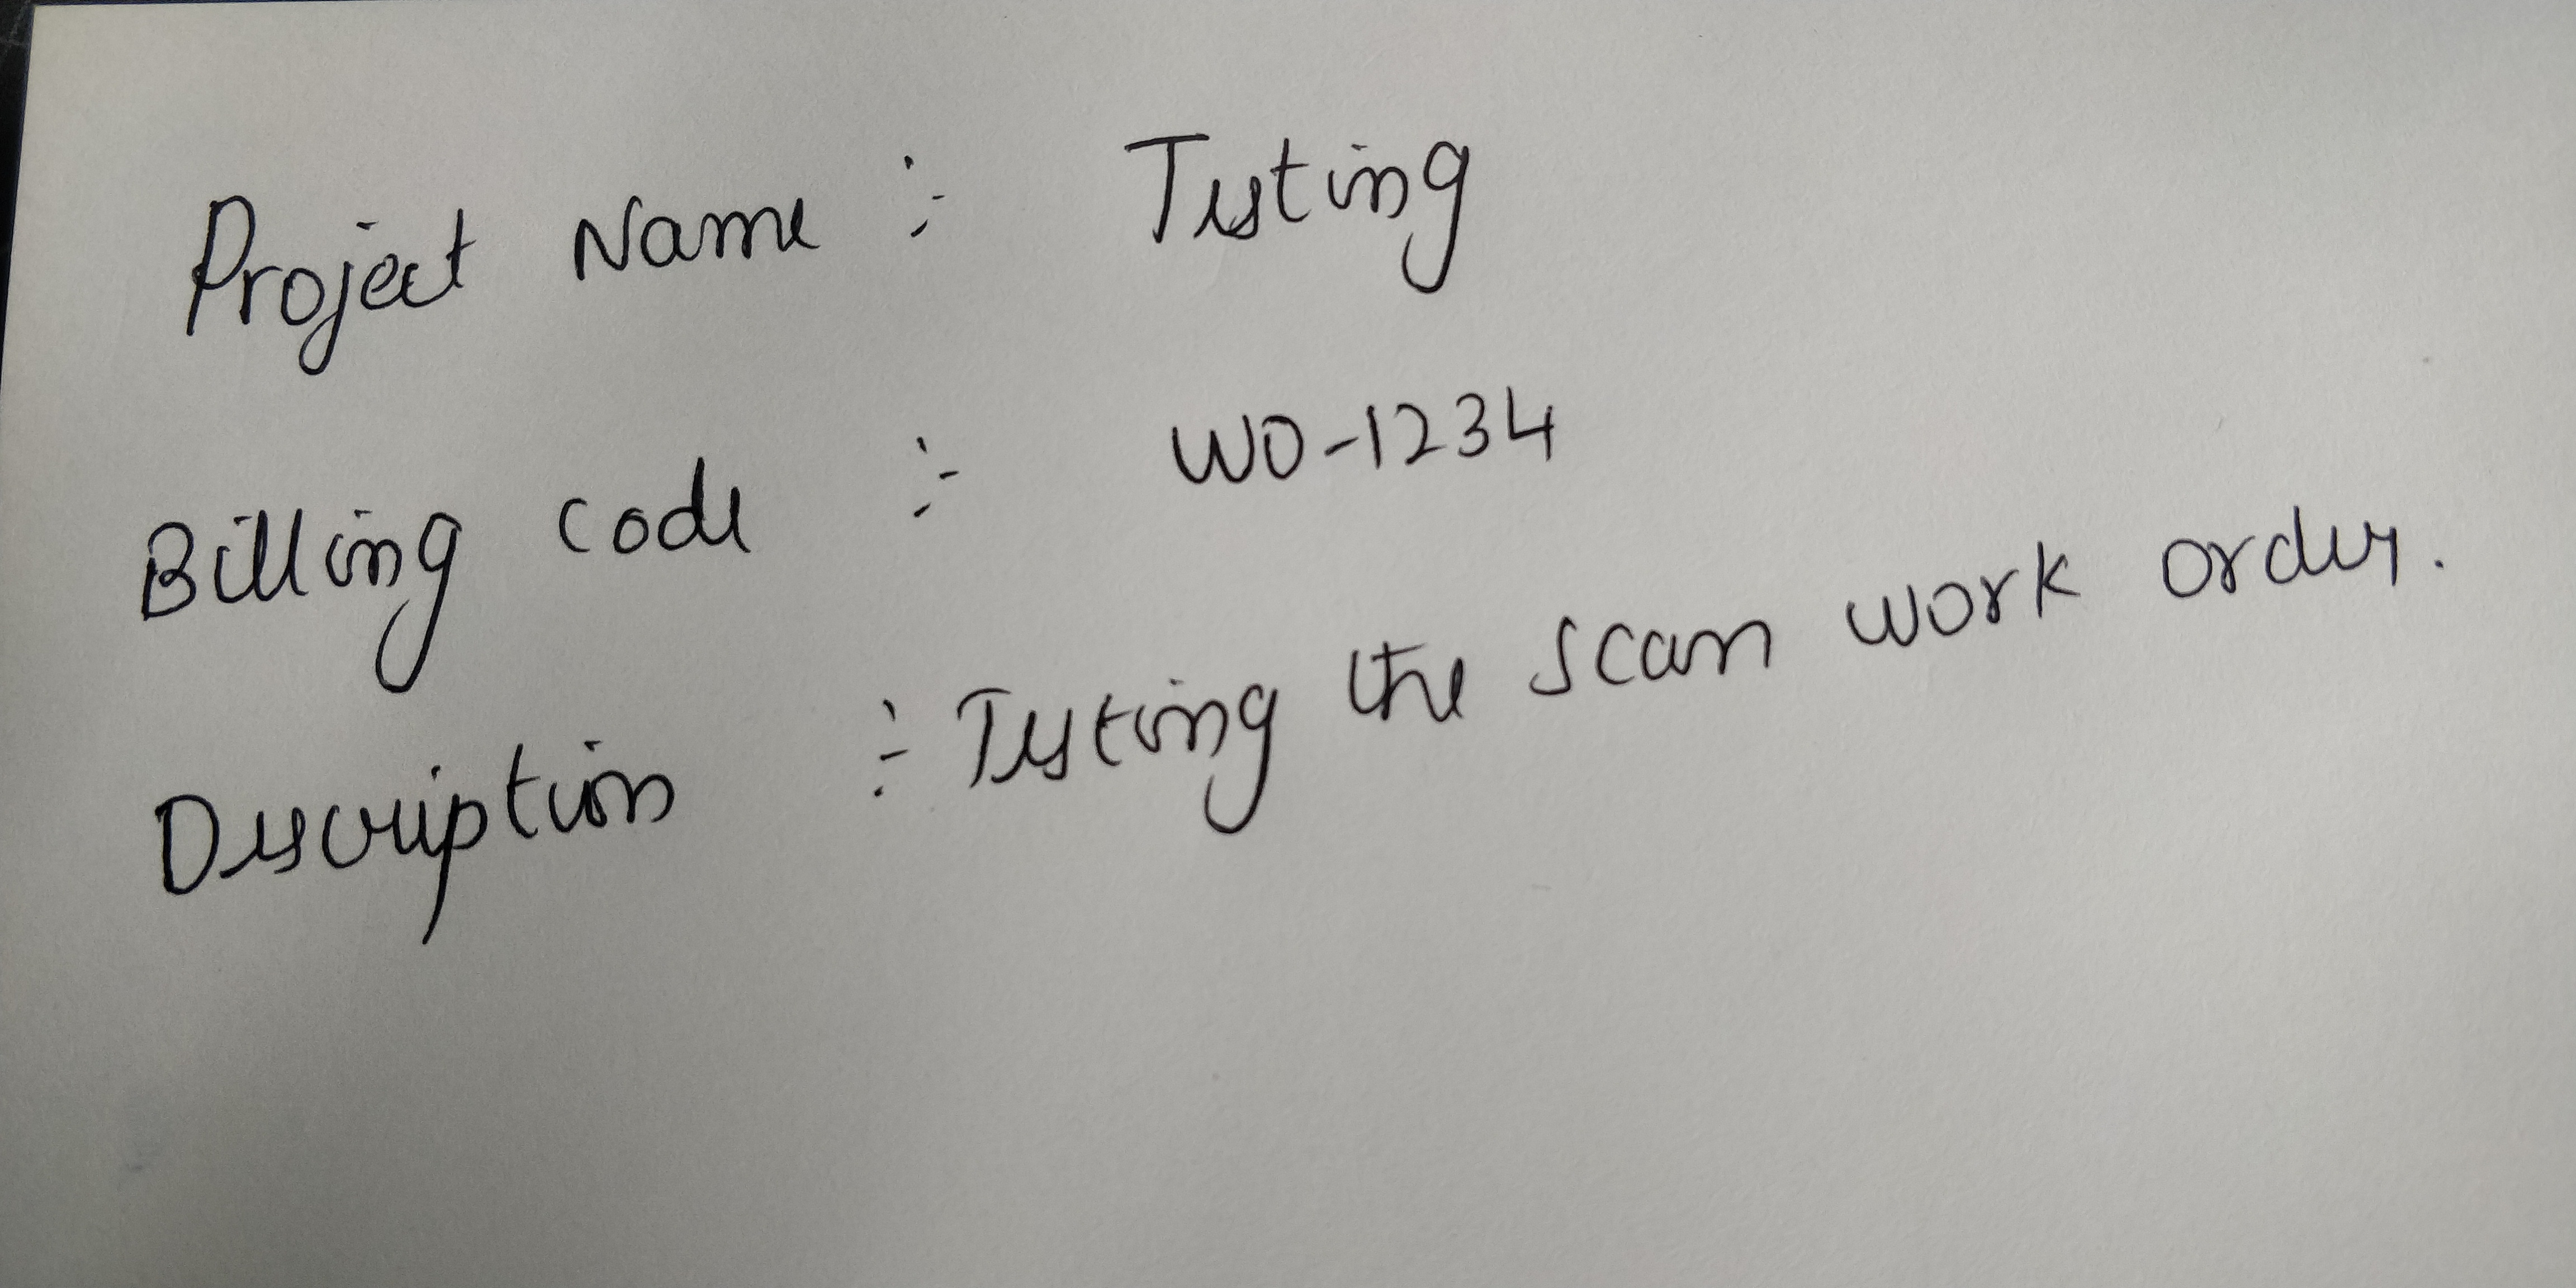 Project Name :- Testing
Billing code :- WO-1234
Description :- Testing the scan work order.